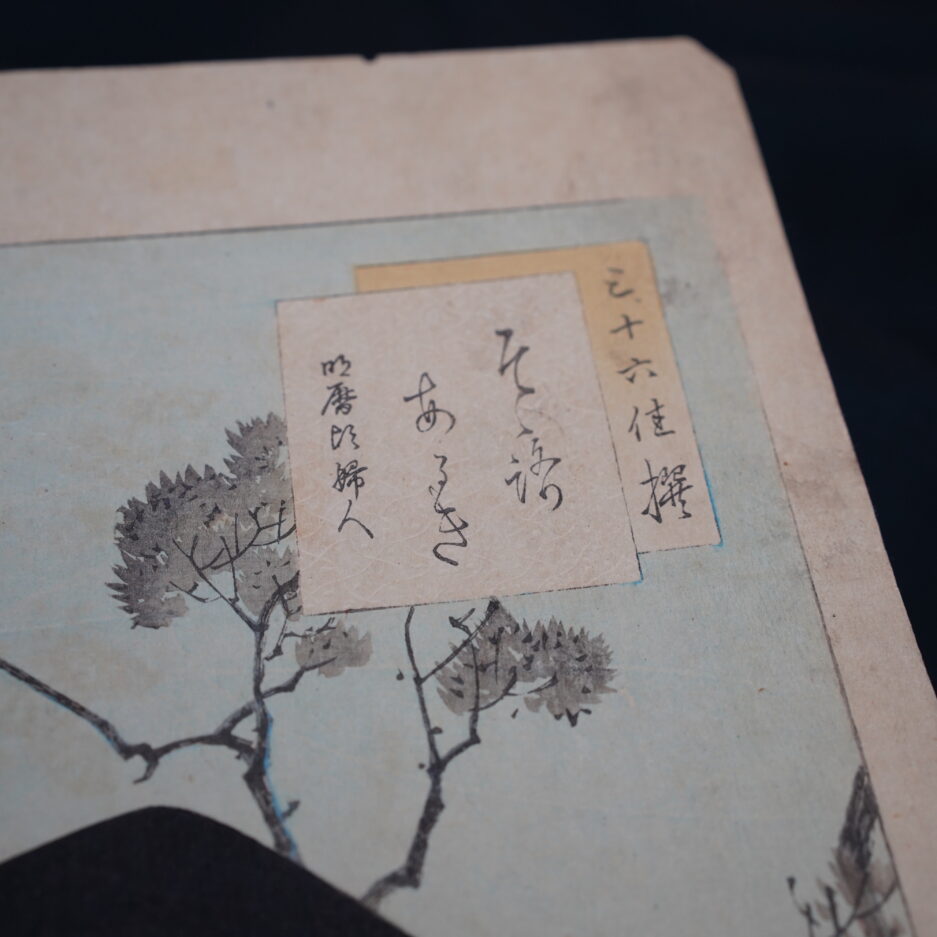 三十六佳撰
そゞろ
あるき
明暦頃婦人